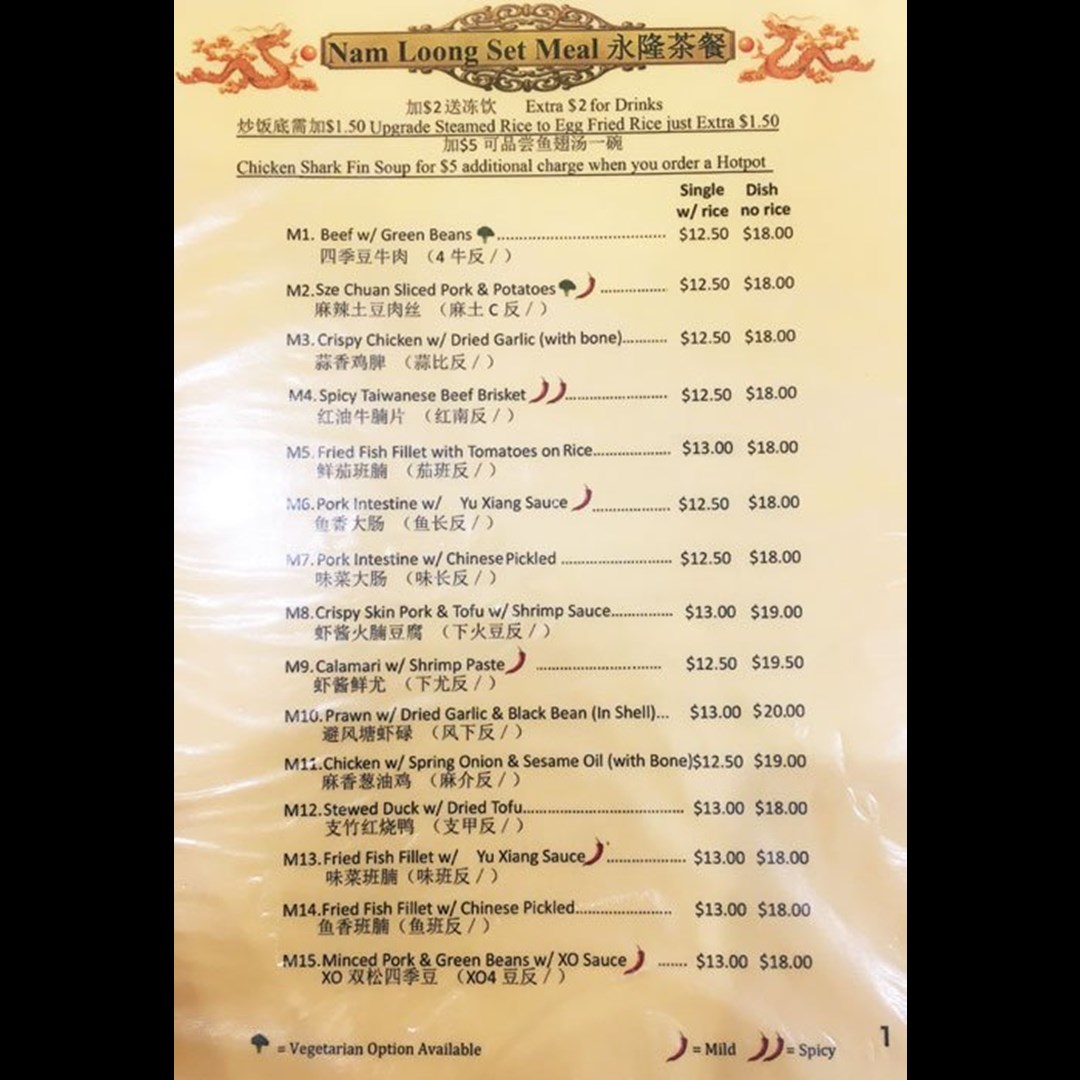 Nam Loong Set Meal 永隆茶餐
加$2送冻饮 Extra $2 for Drinks
炒饭底需加$1.50 Upgrade Steamed Rice to Egg Fried Rice just Extra $1.50
加$5 可品尝鱼翅汤一碗
Chicken Shark Fin Soup for $5 additional charge when you order a Hotpot
Single Dish
w/ rice no rice
M1. Beef w/ Green Beans ........................................ $12.50 $18.00
四季豆牛肉 （4 牛反 / ）
M2.Sze Chuan Sliced Pork & Potatoes ................ $12.50 $18.00
麻辣土豆肉丝 （麻土 C 反 / ）
M3. Crispy Chicken w/ Dried Garlic (with bone).......... $12.50 $18.00
蒜香鸡脾 （蒜比反 / ）
M4. Spicy Taiwanese Beef Brisket ........................ $12.50 $18.00
红油牛腩片 （红南反 / ）
M5. Fried Fish Fillet with Tomatoes on Rice.................. $13.00 $18.00
鲜茄班腩 （茄班反 / ）
M6.Pork Intestine w/ Yu Xiang Sauce .................. $12.50 $18.00
鱼香大肠 （鱼长反 / ）
M7. Pork Intestine w/ Chinese Pickled .......................... $12.50 $18.00
味菜大肠 （味长反 / ）
M8.Crispy Skin Pork & Tofu w/ Shrimp Sauce............... $13.00 $19.00
虾酱火腩豆腐 （下火豆反 / ）
M9.Calamari w/ Shrimp Paste .............................. $12.50 $19.50
虾酱鲜尤 （下尤反 / ）
M10.Prawn w/ Dried Garlic & Black Bean (In Shell)... $13.00 $20.00
避风塘虾碌 （风下反 / ）
M11.Chicken w/ Spring Onion & Sesame Oil (with Bone)$12.50 $19.00
麻香葱油鸡 （麻介反 / ）
M12.Stewed Duck w/ Dried Tofu...................................... $13.00 $18.00
支竹红烧鸭 （支甲反 / ）
M13.Fried Fish Fillet w/ Yu Xiang Sauce ................... $13.00 $18.00
味菜班腩（味班反 / ）
M14.Fried Fish Fillet w/ Chinese Pickled....................... $13.00 $18.00
鱼香班腩（鱼班反 / ）
M15.Minced Pork & Green Beans w/ XO Sauce ....... $13.00 $18.00
XO 双松四季豆 （XO4 豆反 / ）
= Vegetarian Option Available = Mild = Spicy
1